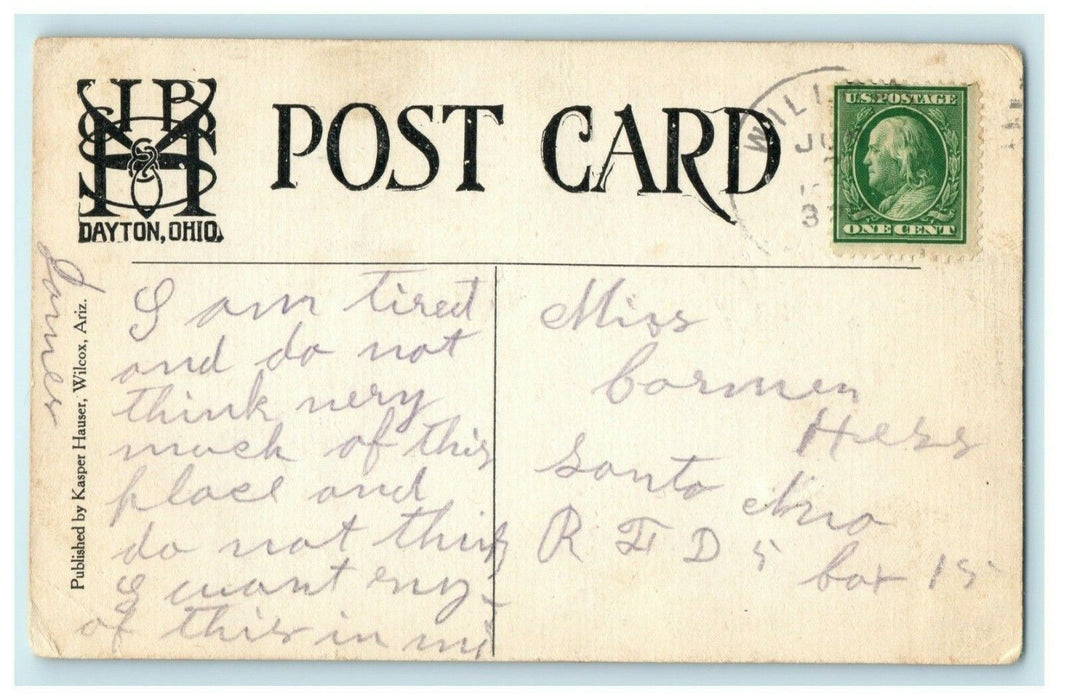 POST CARD
DAYTON, OHIO.
WILL
JU
3
U.S. POSTAGE
ONE CENT
Published by Kasper Hauser, Wilcox, Ariz.
James
I am tired
and do not
think very
much of this
place and
do not think
I want eny
of this in
Miss
Carmen
Hess
Santa Ana
R F D 5
box 15